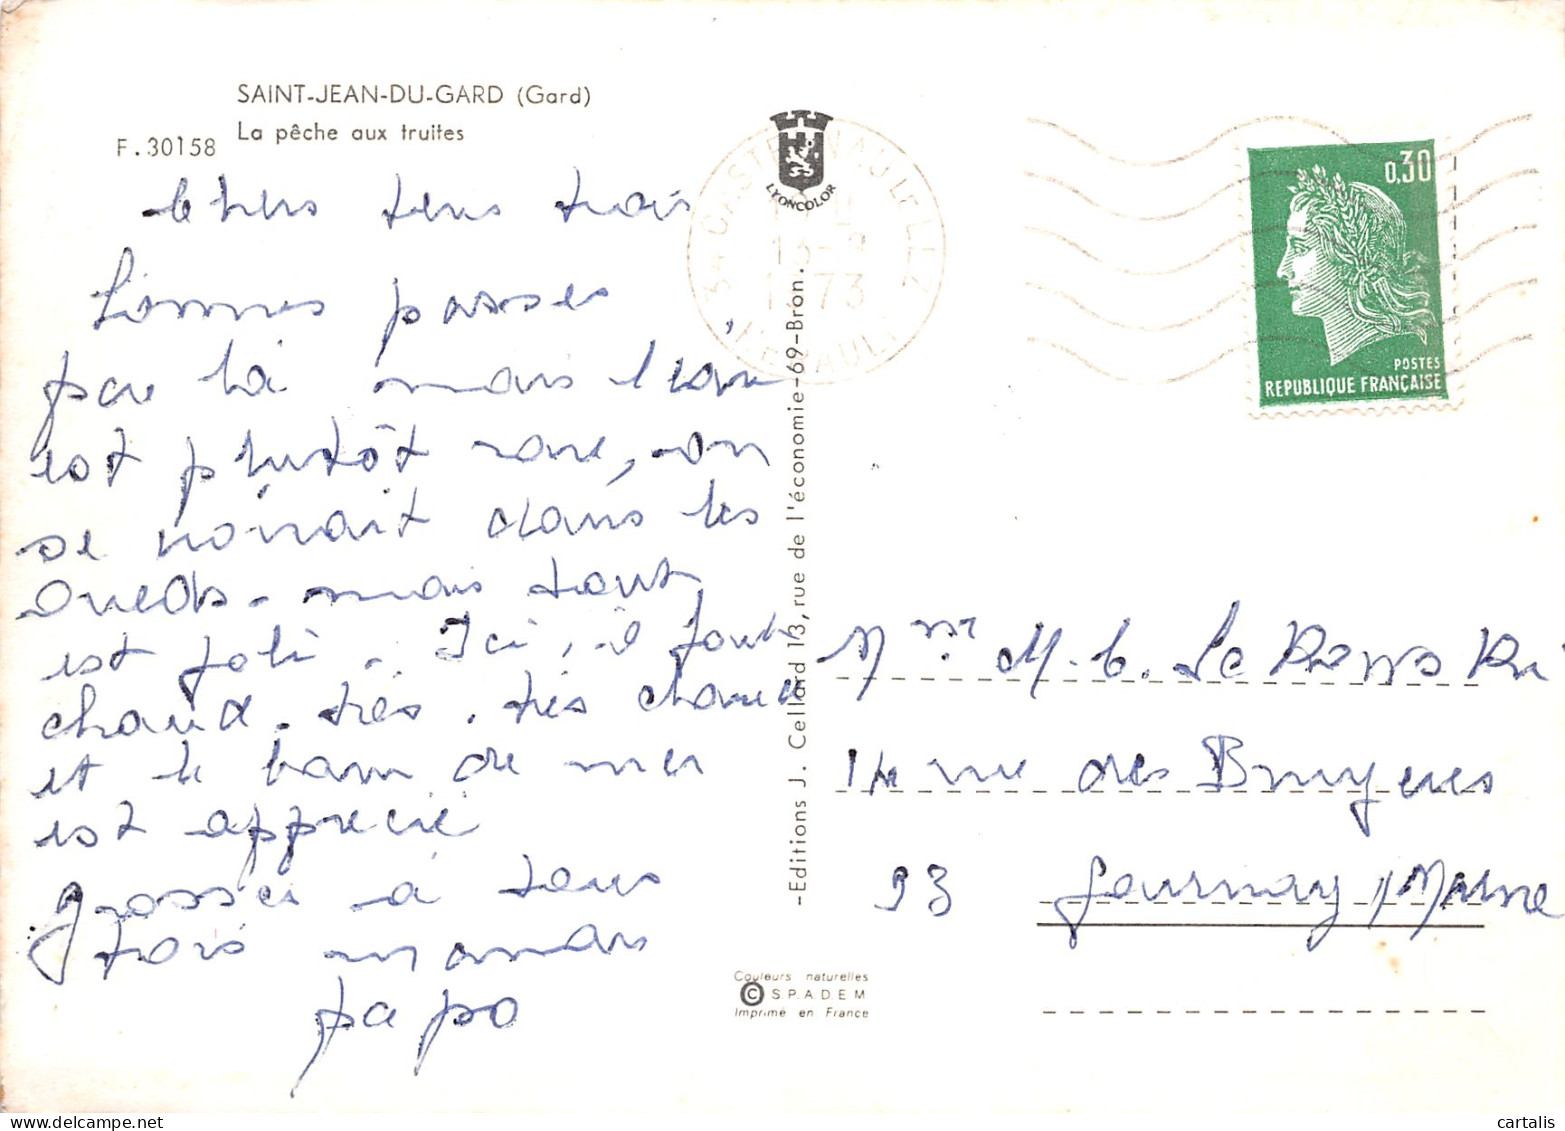 SAINT-JEAN-DU-GARD (Gard)
La pêche aux truites
F. 30158
Chers tous trois
sommes passés
par là mais l'eau
est plutôt rare, on
se noirait dans les
Oueds - mais tout
est joli - Ici, il fait
chaud - très - très chaud
et le bain de mer
est apprécié
grosses à tous
trois
papo
LYONCOLOR
34 CASTELNAU LE LEZ
13-8
1973
HERAULT
-Editions J. Cellard 13, rue de l'économie-69-Bron.
Couleurs naturelles
© S.P.A.D.E.M
Imprimé en France
0,30
POSTES
REPUBLIQUE FRANÇAISE
M. C. Le
14 rue des Bruyeres
93 Gournay / Marne
cartalis